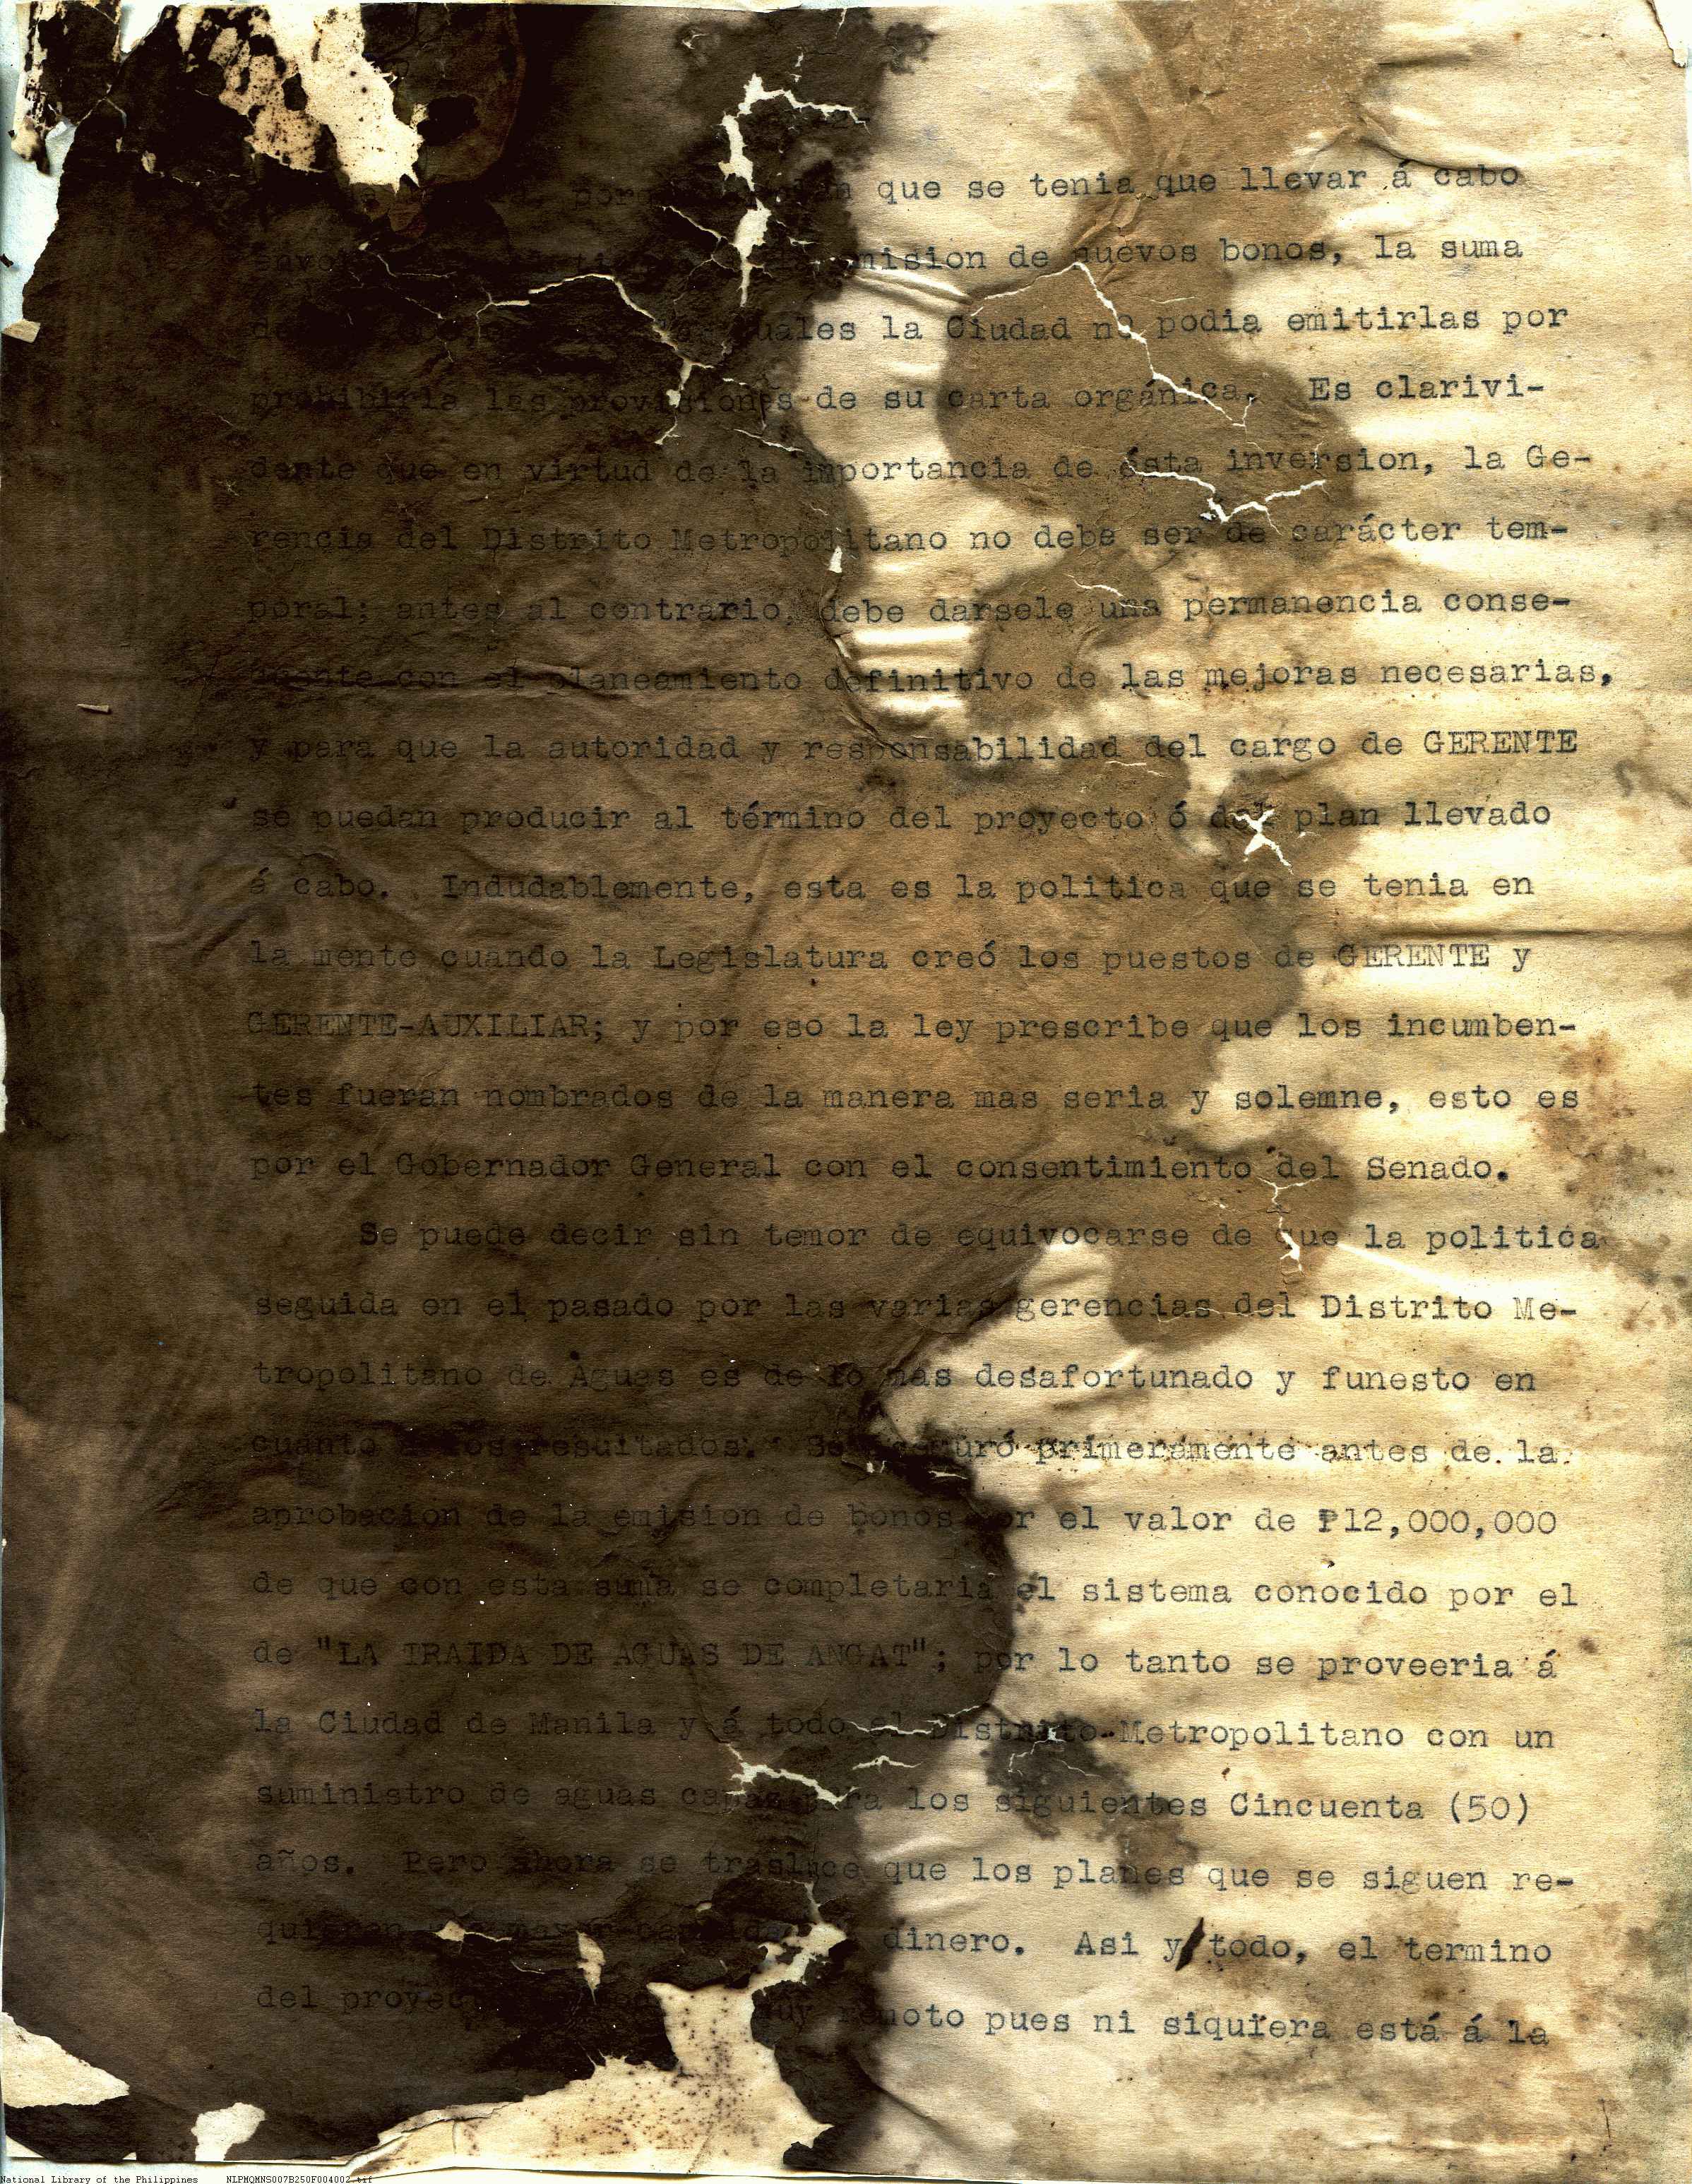 por que se tenia que llevar á cabo
emision de nuevos bonos, la suma
de cuales la Ciudad no podia emitirlas por
prohibirla las provisiones de su carta orgánica. Es clarivi-
dente que en virtud de la importancia de ésta inversion, la Ge-
rencia del Distrito Metropolitano no debe ser de carácter tem-
poral; antes al contrario, debe darsele una permanencia conse-
cuente con el planeamiento definitivo de las mejoras necesarias,
y para que la autoridad y responsabilidad del cargo de GERENTE
se puedan producir al término del proyecto ó del plan llevado
á cabo. Indudablemente, esta es la politica que se tenia en
la mente cuando la Legislatura creó los puestos de GERENTE y
GERENTE-AUXILIAR; y por eso la ley prescribe que los incumben-
tes fueran nombrados de la manera mas seria y solemne, esto es
por el Gobernador General con el consentimiento del Senado.
Se puede decir sin temor de equivocarse de que la politica
seguida en el pasado por las varias gerencias del Distrito Me-
tropolitano de Aguas es de lo mas desafortunado y funesto en
cuanto a los resultados. Se aseguró primeramente antes de la
aprobacion de la emision de bonos por el valor de ₱12,000,000
de que con esta suma se completaria el sistema conocido por el
de "LA TRAIDA DE AGUAS DE ANGAT"; por lo tanto se proveeria á
la Ciudad de Manila y á todo el Distrito Metropolitano con un
suministro de aguas capaz para los siguientes Cincuenta (50)
años. Pero ahora se trasluce que los planes que se siguen re-
quieren mayor cantidad dinero. Asi y todo, el termino
del proyecto muy remoto pues ni siquiera está á la
National Library of the Philippines NLPMQMNS007B250F004002.tif